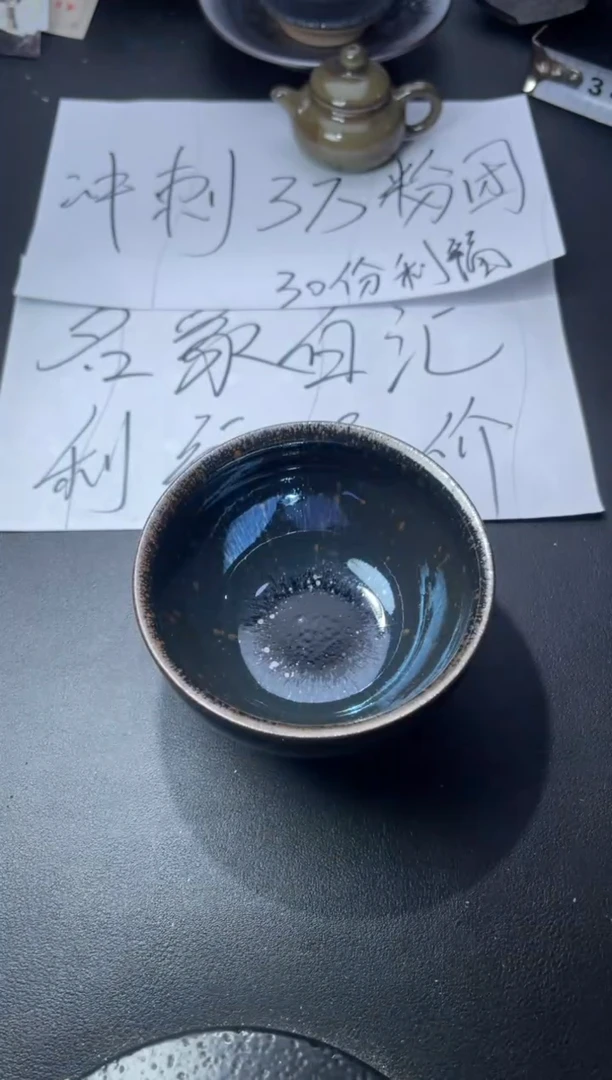 冲刺3万粉团
30份利福
名家百汇
利 价
3